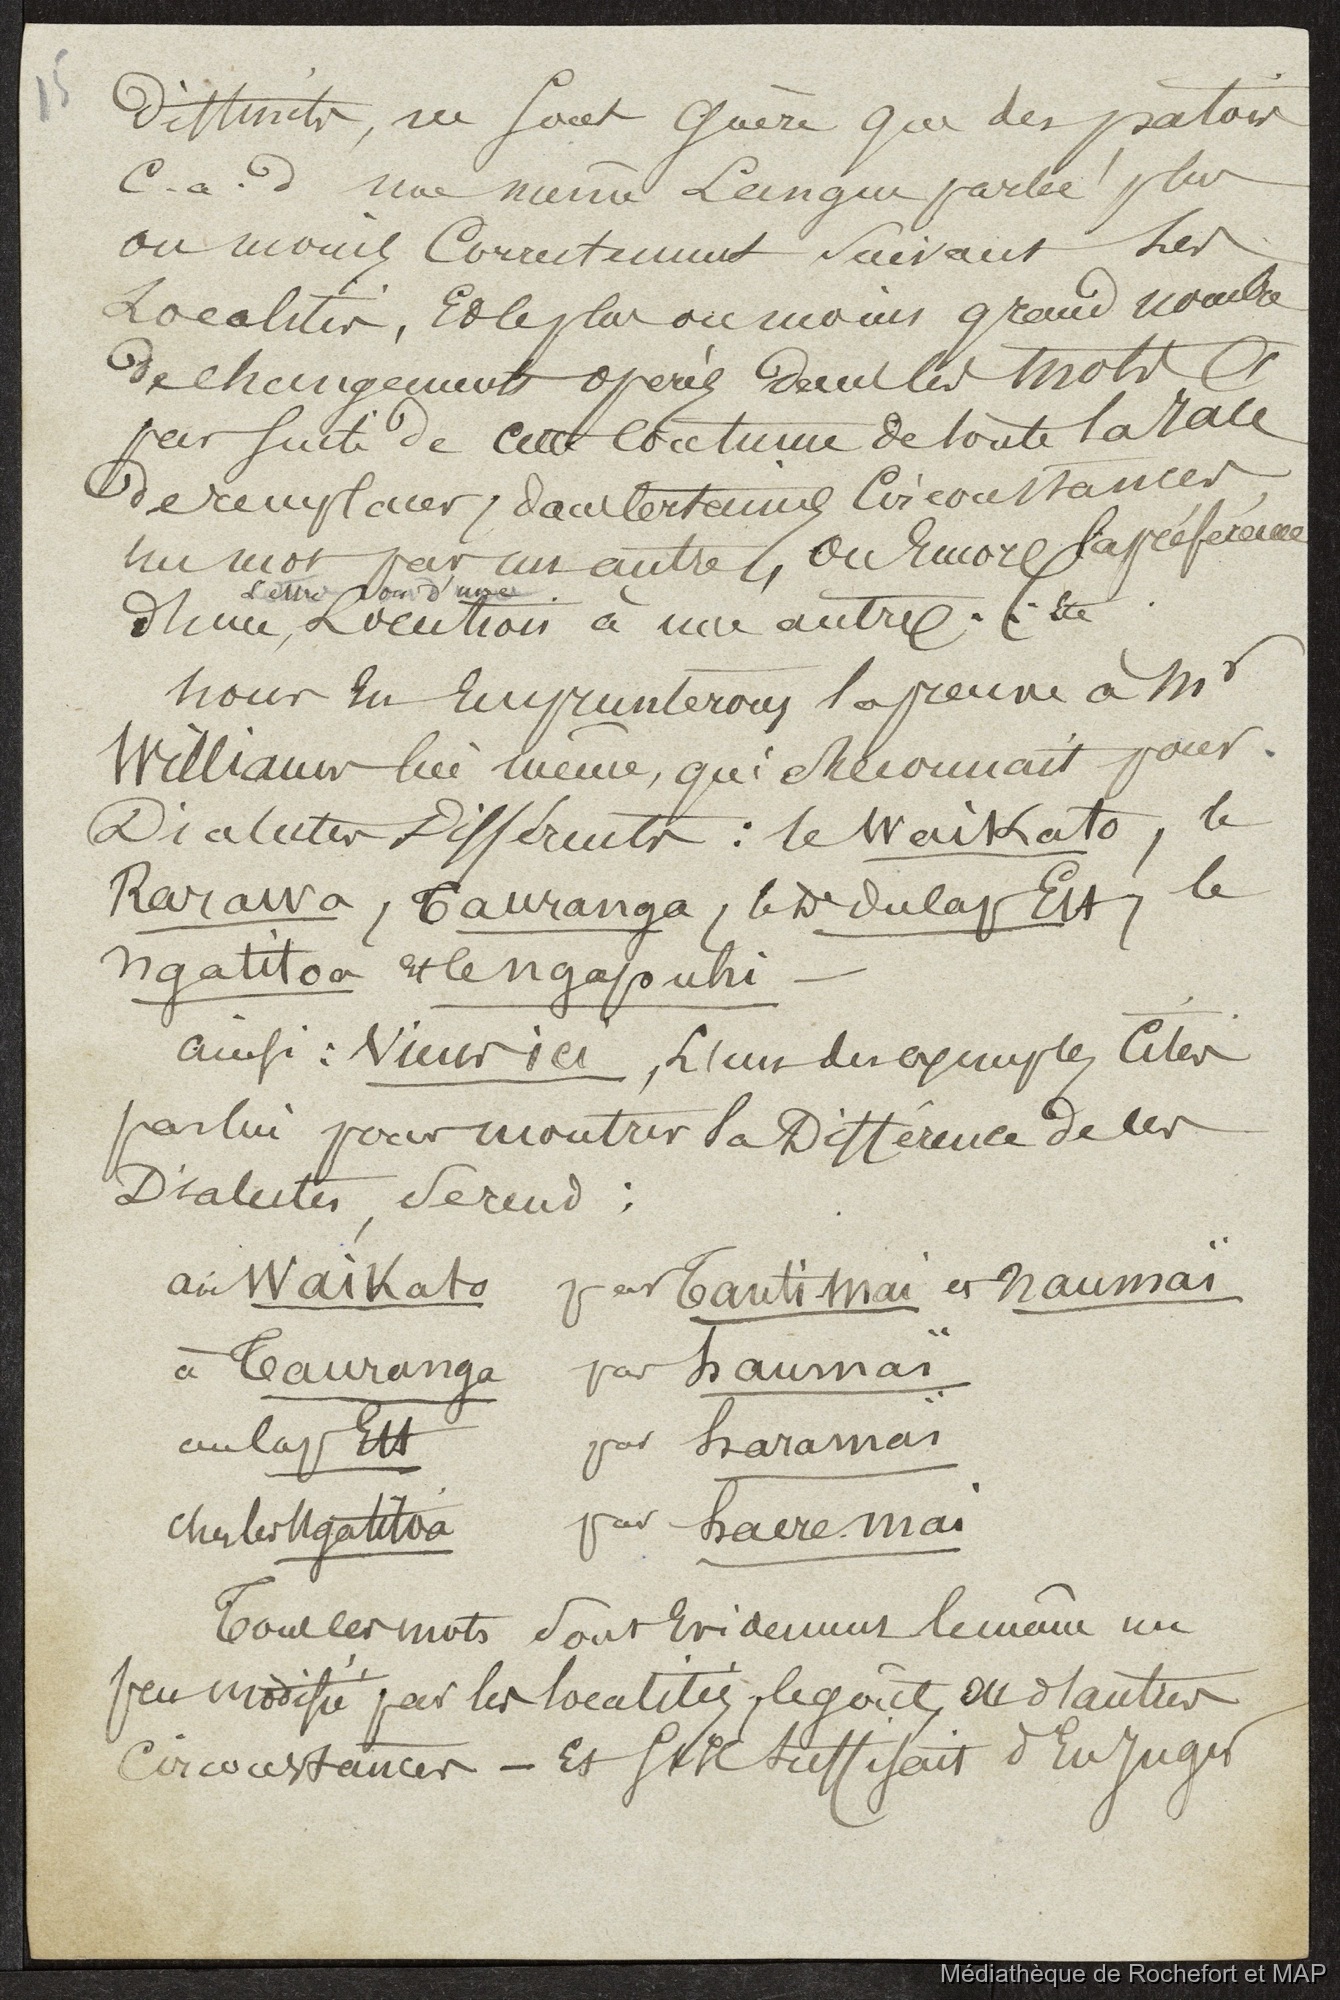 15
Distincts, ne sont Guère que des patois
C.-a.-d une même Langue parlée plus
ou moins Correctement suivant les
Localités, Et le plus ou moins grand nombre
de changements opérés dans les mots Et
par suite de cette coutume de toute la race
de remplacer, dans certaines Circonstances,
un mot par un autre, ou Encore la préférence
Lettre ou d'une
d'une, Locution à une autre. : Etc
nous En Emprunterons la preuve à Mr
Williams lui même, qui reconnait pour
Dialectes Différents : le Waikato, le
Rarawa, Tauranga, le De du Cap Est, le
Ngatitoa et le Ngapuhi —
ainsi : Viens ici, L'un des exemples Cités
par lui pour montrer la Différence de ces
Dialectes, se rend :
au Waikato par Tauti mai et Naumaï
à Tauranga par haumaï
au Cap Est par haramaï
chez les Ngatitoa par haere mai
Tous ces mots sont Evidemment le même un
peu modifié par les localités, le goût, ou d'autres
Circonstances — Et s'il suffisait d'En Juger
Médiathèque de Rochefort et MAP